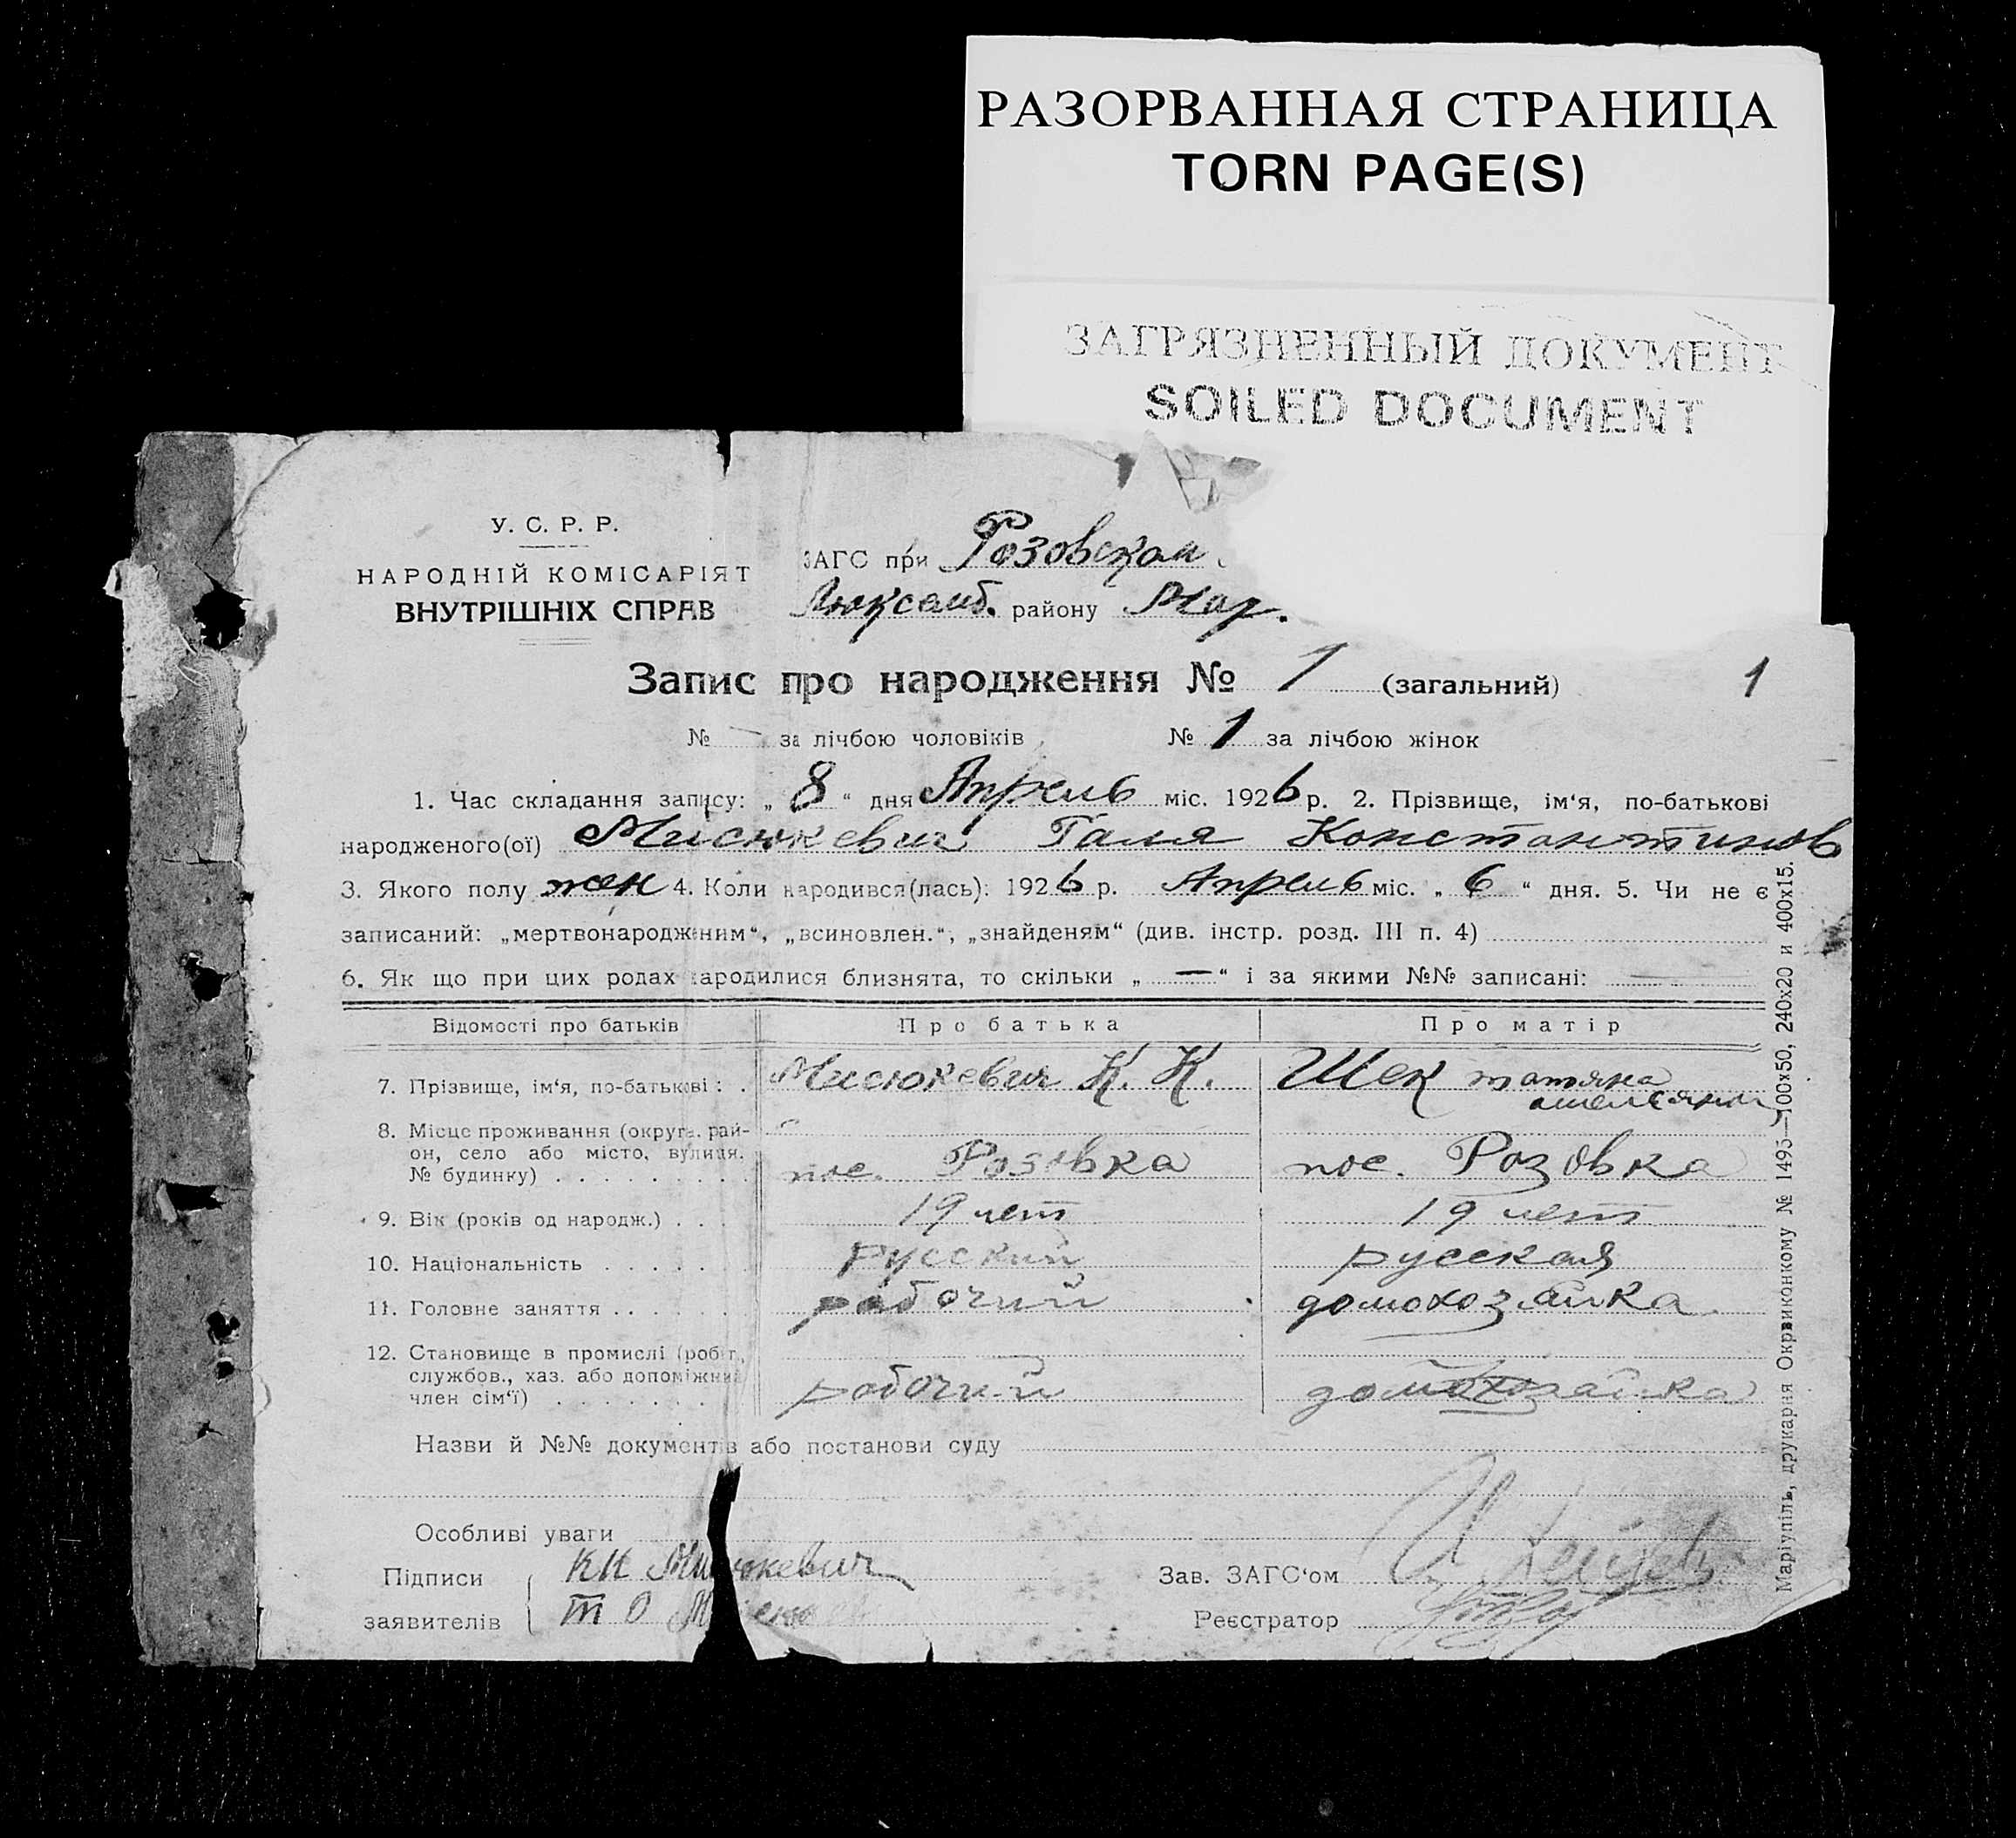 РАЗОРВАННАЯ СТРАНИЦА
TORN PAGE(S)
ЗАГРЯЗНЕННЫЙ ДОКУМЕНТ
SOILED DOCUMENT
У. С. Р. Р.
НАРОДНІЙ КОМІСАРІЯТ
ВНУТРІШНІХ СПРАВ
ЗАГС при Розовском
Люксемб. району Мар.
Запис про народження № 1 (загальний)
1
№ — за лічбою чоловіків № 1 за лічбою жінок
1. Час складання запису: „ 8 “ дня Апрель міс. 1926 р. 2. Прізвище, ім‘я, по-батькові
народженого(ої) Мисюкевич Галя Константинов
3. Якого полу жен 4. Коли народився(лась): 1926 р. Апрель міс. „ 6 “ дня. 5. Чи не є
записаний: „мертвонародженим“, „всиновлен.“, „знайденям“ (див. інстр. розд. III п. 4)
6. Як що при цих родах народилися близнята, то скільки „ — “ і за якими №№ записані:
Відомості про батьків Про батька Про матір
7. Прізвище, ім‘я, по-батькові : . Мисюкевич К. К. Шек татяна
8. Місце проживання (округа, рай-
он, село або місто, вулиця,
№ будинку) . . . . . . . . . пос. Розовка пос. Розовка
9. Вік (років од народж.) . . . 19 лет 19 лет
10. Національність . . . . . . русский русская
11. Головне заняття . . . . . . рабочий домохозяйка
12. Становище в промислі (робіт.,
службов., хаз. або допоміжний
член сім‘ї) . . . . . . . рабочий домохозайка
Назви й №№ документів або постанови суду
Особливі уваги
Підписи КК Мисюкевич Зав. ЗАГС‘ом
заявителів Т О Реєстратор
Маріупіль, друкарня Окрвиконкому № 1495—100х50, 240х20 и 400х15.